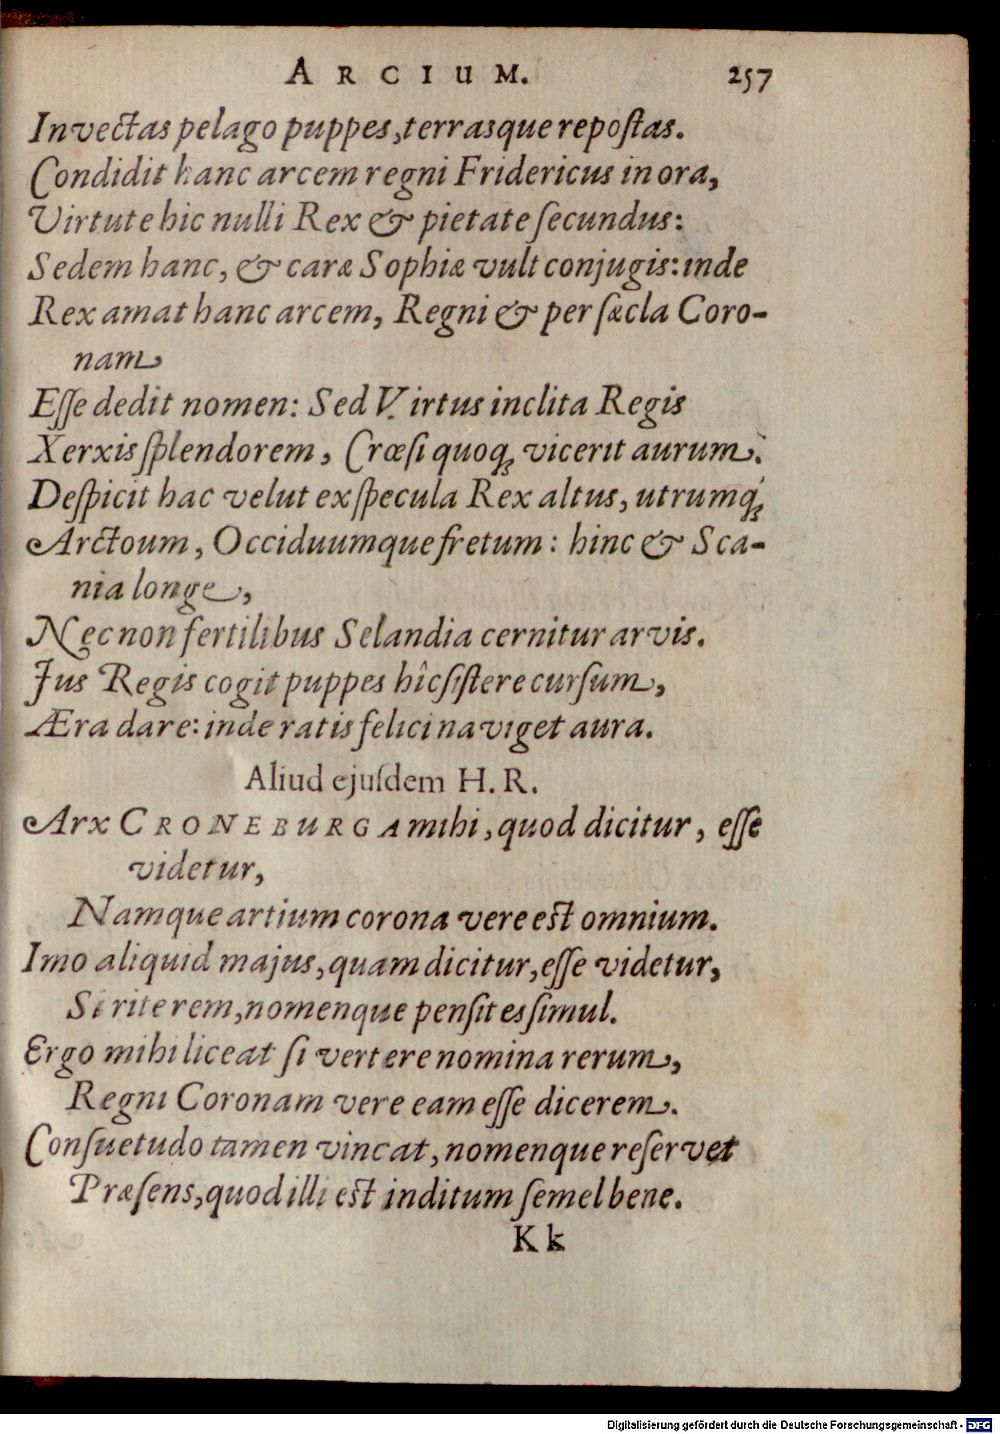 ARCIUM. 257
Invectas pelago puppes, terrasque repoſtas.
Condidit hanc arcem regni Fridericus in ora,
Virtute hic nulli Rex & pietate ſecundus:
Sedem hanc, & caræ Sophiæ vult conjugis: inde
Rex amat hanc arcem, Regni & per ſæcla Coro-
nam
Eſſe dedit nomen: Sed Virtus inclita Regis
Xerxis ſplendorem, Crœſi quoq; vicerit aurum.
Deſpicit hac velut ex ſpecula Rex altus, utrumq;
Arctoum, Occiduumque fretum: hinc & Sca-
nia longe,
Nec non fertilibus Selandia cernitur arvis.
Jus Regis cogit puppes hîc ſiſtere curſum,
Æra dare: inde ratis felici naviget aura.
Aliud ejuſdem H. R.
Arx CRONEBURGA mihi, quod dicitur, eſſe
videtur,
Namque artium corona vere eſt omnium.
Imo aliquid majus, quam dicitur, eſſe videtur,
Si rite rem, nomenque penſites ſimul.
Ergo mihi liceat ſi vertere nomina rerum,
Regni Coronam vere eam eſſe dicerem.
Conſuetudo tamen vincat, nomenque reſervet
Præſens, quod illi eſt inditum ſemel bene.
Kk
Digitalisierung gefördert durch die Deutsche Forschungsgemeinschaft - DFG